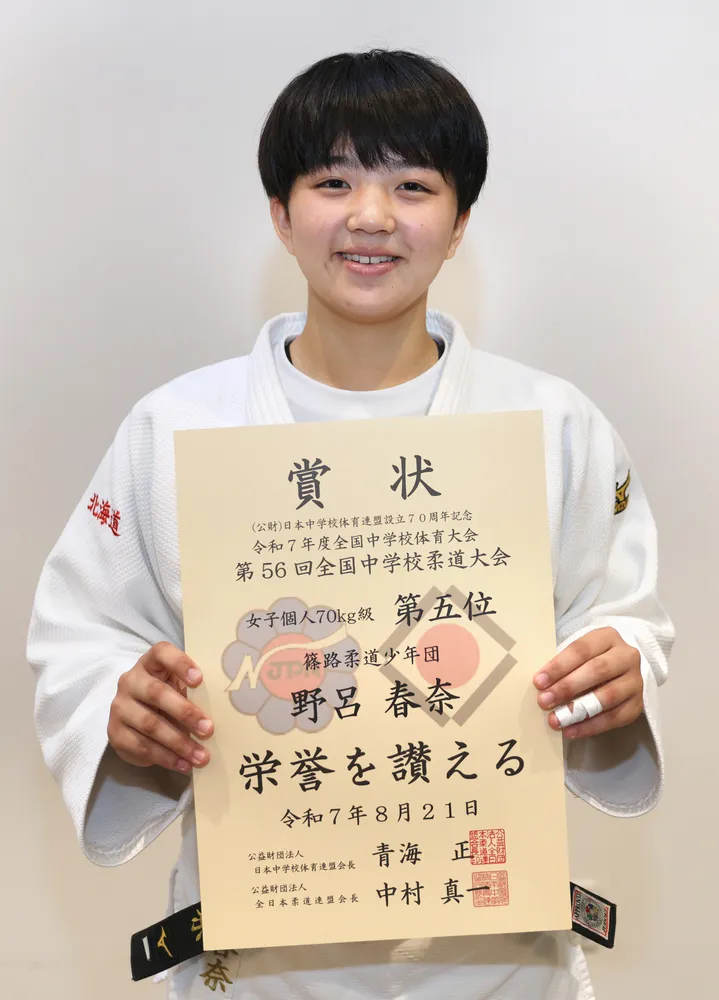 北海道
賞 状
(公財)日本中学校体育連盟設立70周年記念
令和7年度全国中学校体育大会
第56回全国中学校柔道大会
女子個人70kg級 第五位
篠路柔道少年団
野呂 春奈
栄誉を讃える
令和7年8月21日
公益財団法人
日本中学校体育連盟会長 青海 正
公益財団法人
全日本柔道連盟会長 中村 真一
JTPA
奈